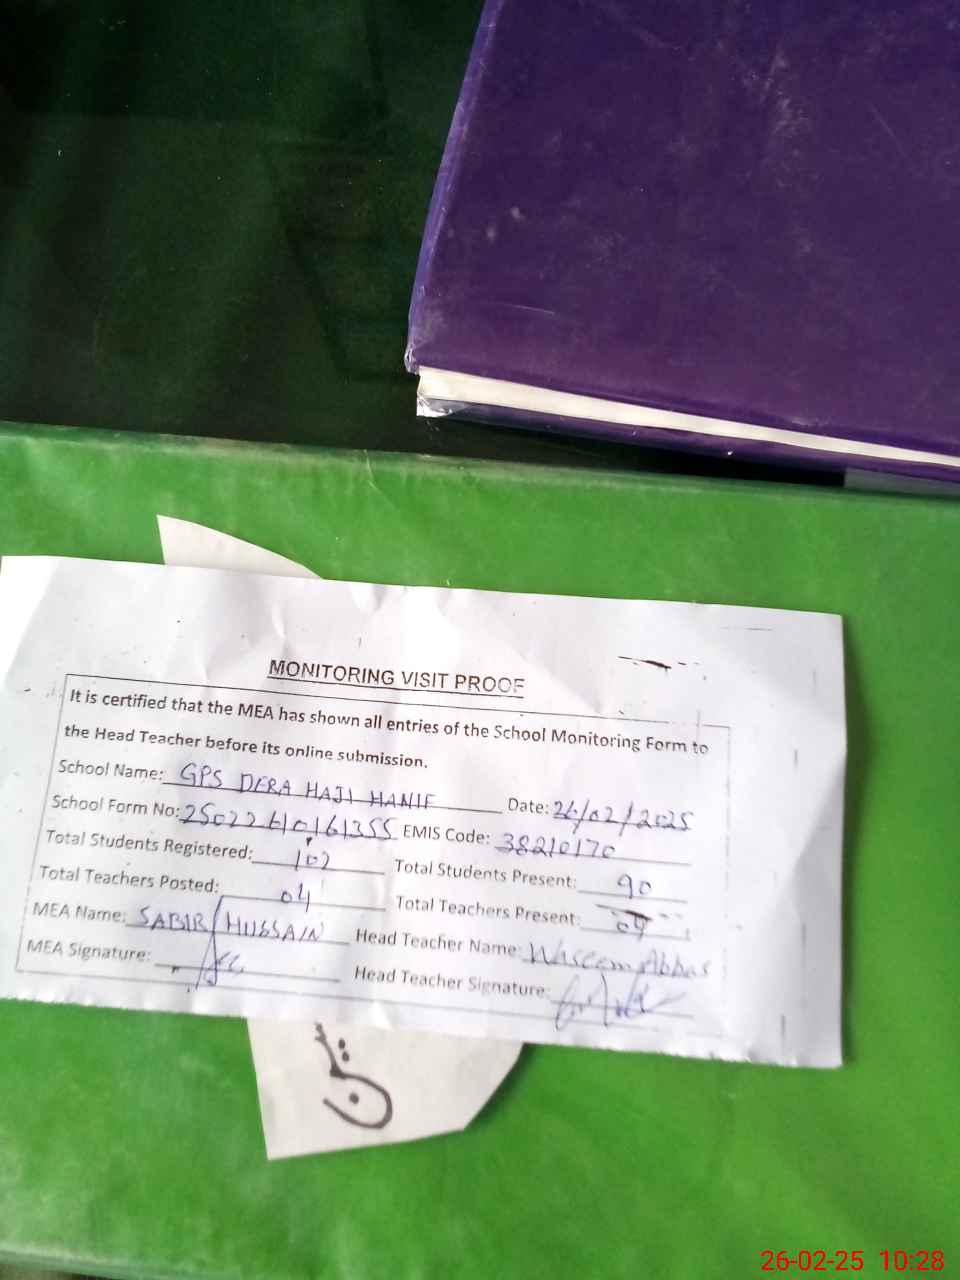 MONITORING VISIT PROOF
It is certified that the MEA has shown all entries of the School Monitoring Form to
the Head Teacher before its online submission.
School Name: GPS DERA HAJI HANIF Date: 26/02/2025
School Form No: 25022610161355 EMIS Code: 38210170
Total Students Registered: 102 Total Students Present: 90
Total Teachers Posted: 04 Total Teachers Present: 04
MEA Name: SABIR HUSSAIN Head Teacher Name: Waseem Abbas
MEA Signature: Head Teacher Signature:
26-02-25 10:28